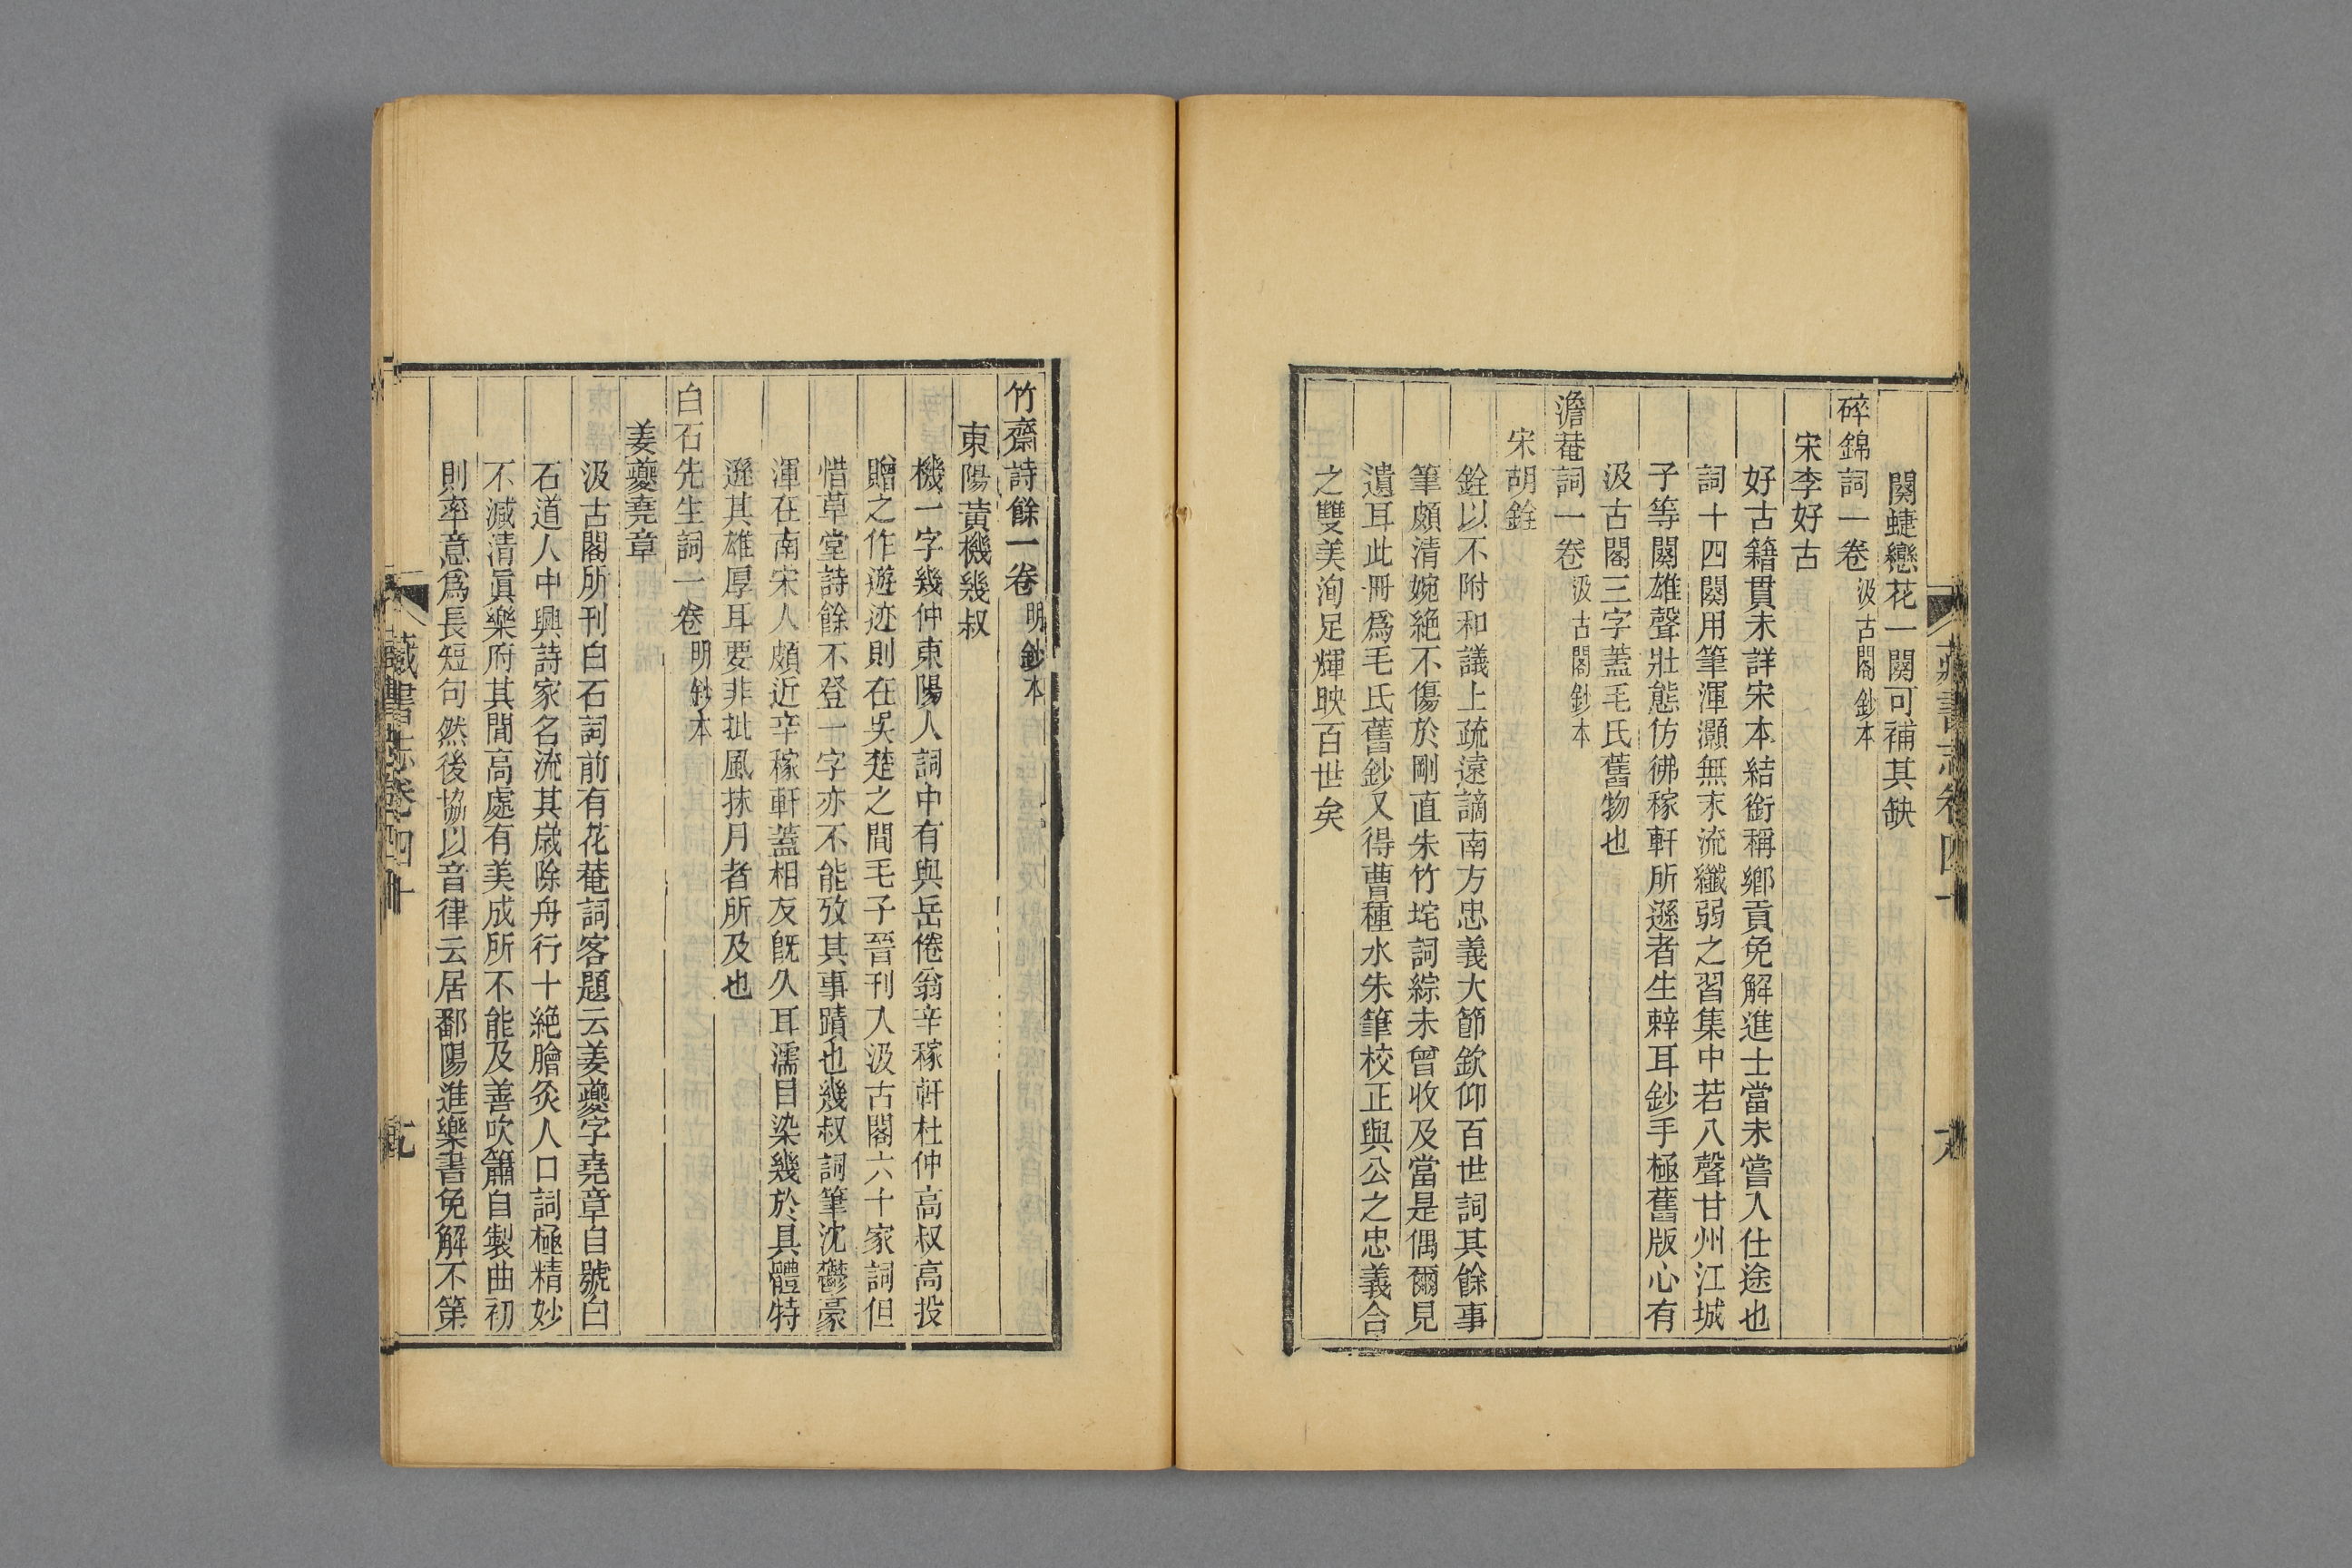 闋蜨戀花一闋可補其缺
碎錦詞一卷汲古閣鈔本
宋李好古
好古籍貫未詳宋本結銜稱鄉貢免解進士當未嘗入仕途也
詞十四闋用筆渾灝無末流纖弱之習集中若八聲甘州江城
子等闋雄聲壯態仿彿稼軒所遜者生辣耳鈔手極舊版心有
汲古閣三字蓋毛氏舊物也
澹菴詞一卷汲古閣鈔本
宋胡銓
銓以不附和議上疏遠謫南方忠義大節欽仰百世詞其餘事
筆頗清婉絕不傷於剛直朱竹垞詞綜未曾收及當是偶爾見
遺耳此冊爲毛氏舊鈔又得曹種水朱筆校正與公之忠義合
之雙美洵足輝映百世矣
竹齋詩餘一卷明鈔本
東陽黃機幾叔
機一字幾仲東陽人詞中有與岳倦翁辛稼軒杜仲高叔高投
贈之作遊迹則在吳楚之間毛子晉刊入汲古閣六十家詞但
惜草堂詩餘不登一字亦不能攷其事蹟也幾叔詞筆沈鬱豪
渾在南宋人頗近辛稼軒蓋相友旣久耳濡目染幾於具體特
遜其雄厚耳要非批風抹月者所及也
白石先生詞一卷明鈔本
姜夔堯章
汲古閣所刊白石詞前有花菴詞客題云姜夔字堯章自號白
石道人中興詩家名流其歲除舟行十絕膾炙人口詞極精妙
不減清眞樂府其間高處有美成所不能及善吹簫自製曲初
則率意爲長短句然後協以音律云居鄱陽進樂書免解不第
藏書志卷四十